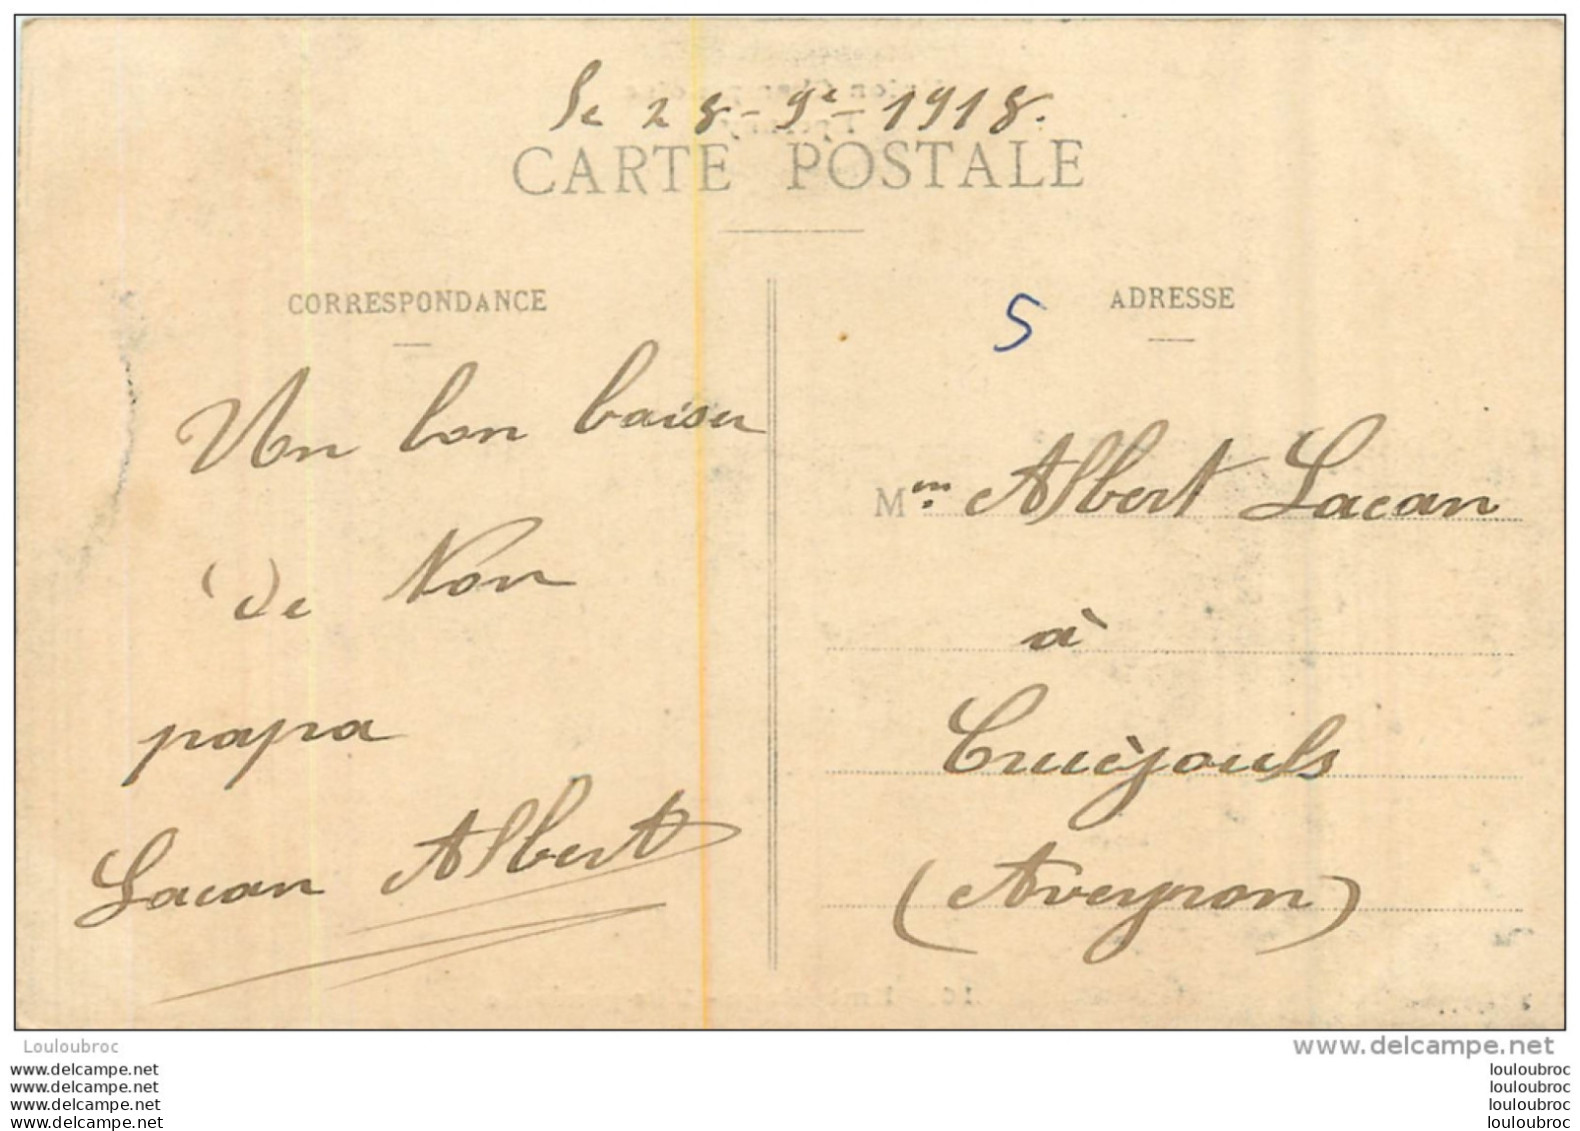 Le 28-9e-1918.
CARTE POSTALE
CORRESPONDANCE
Un bon baiser
de Ton
papa
Lacan Albert
5
ADRESSE
Mm. Albert Lacan
à
Cruéjouls
(Aveyron)
Louloubroc
www.delcampe.net
www.delcampe.net
www.delcampe.net
www.delcampe.net
www.delcampe.net
louloubroc
louloubroc
louloubroc
louloubroc